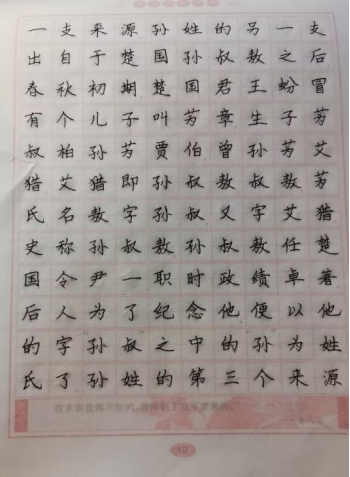 一支来源孙姓的另一支
出自于楚国孙叔敖之后
春秋初期楚国君王蚡冒
有个儿子叫艻章生子艻
叔柏孙艻贾伯曾孙艻艾
猎艾猎即孙叔敖叔敖艻
氏名敖字孙叔又字艾猎
史称孙叔敖孙叔敖任楚
国令尹一职时政绩卓著
后人为了纪念他便以他
的字孙叔之中的孙为姓
氏了孙姓的第三个来源
19